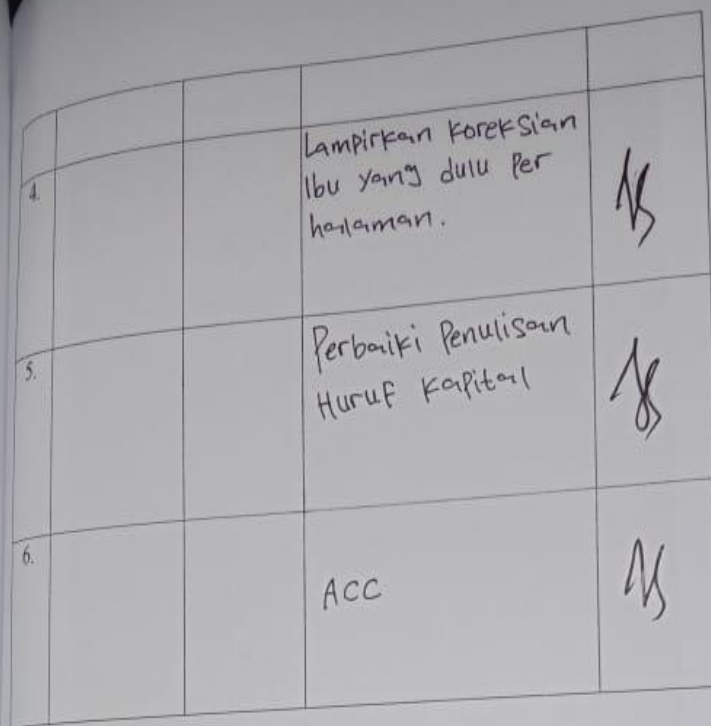 4.
Lampirkan Koreksian
Ibu yang dulu Per
halaman.
5.
Perbaiki Penulisan
Huruf Kapital
6.
ACC